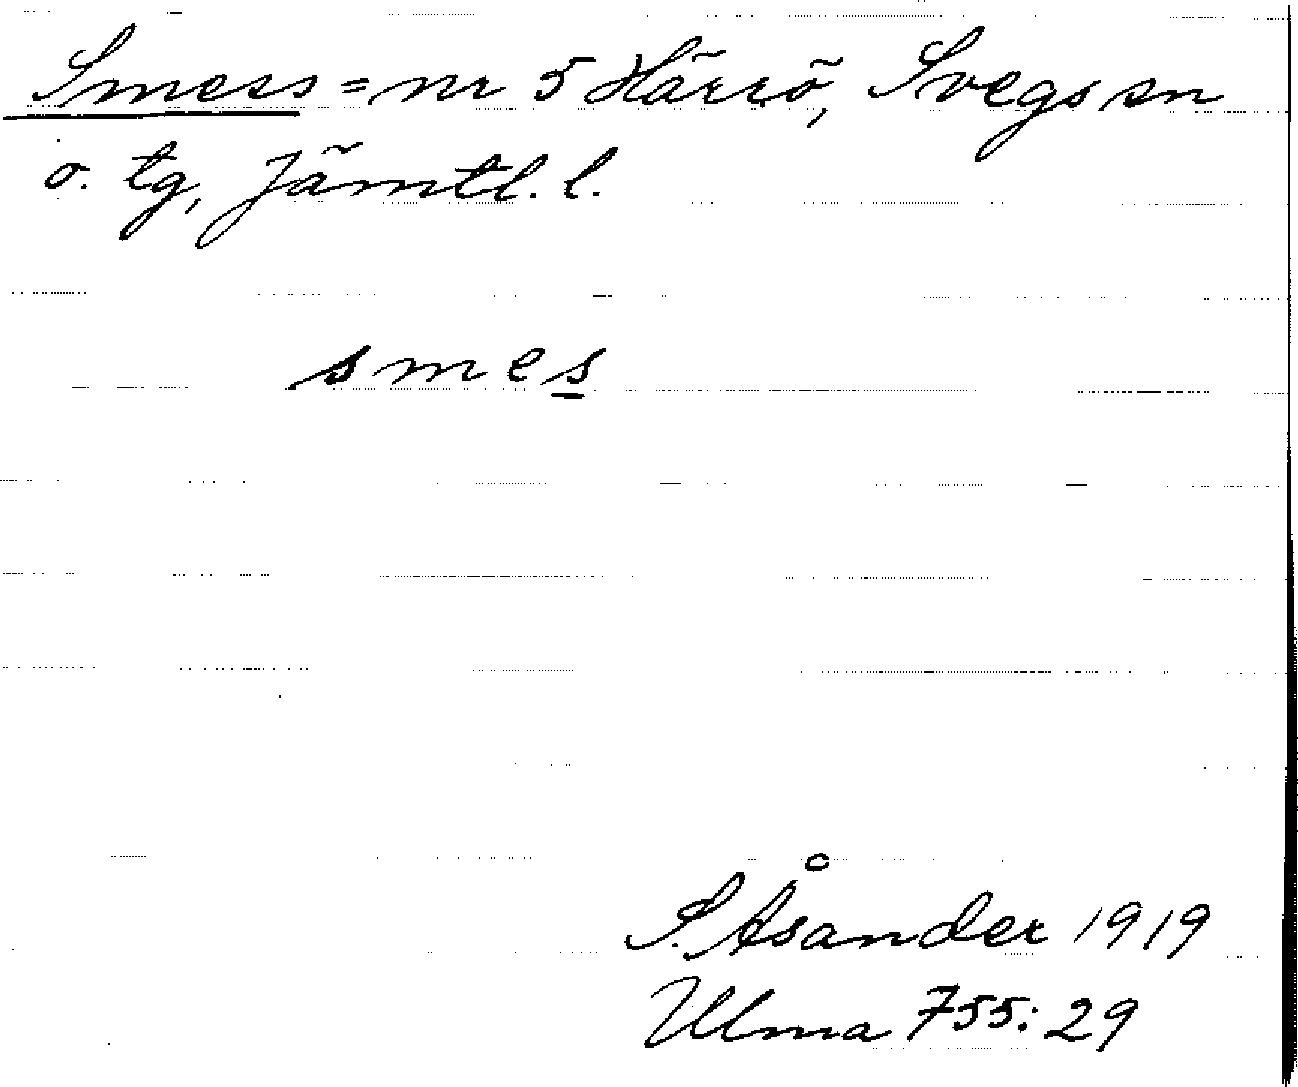 Smess = nr 5 Härrö, Svegs sn
o. tg, Jämtl. l.
smes
S. Åsander 1919
Ulma 755:29